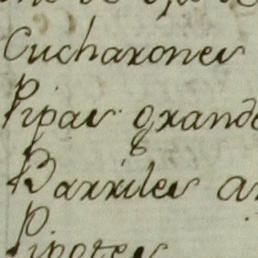 Cucharones
Pipas grande
Barriles a
Pipotes